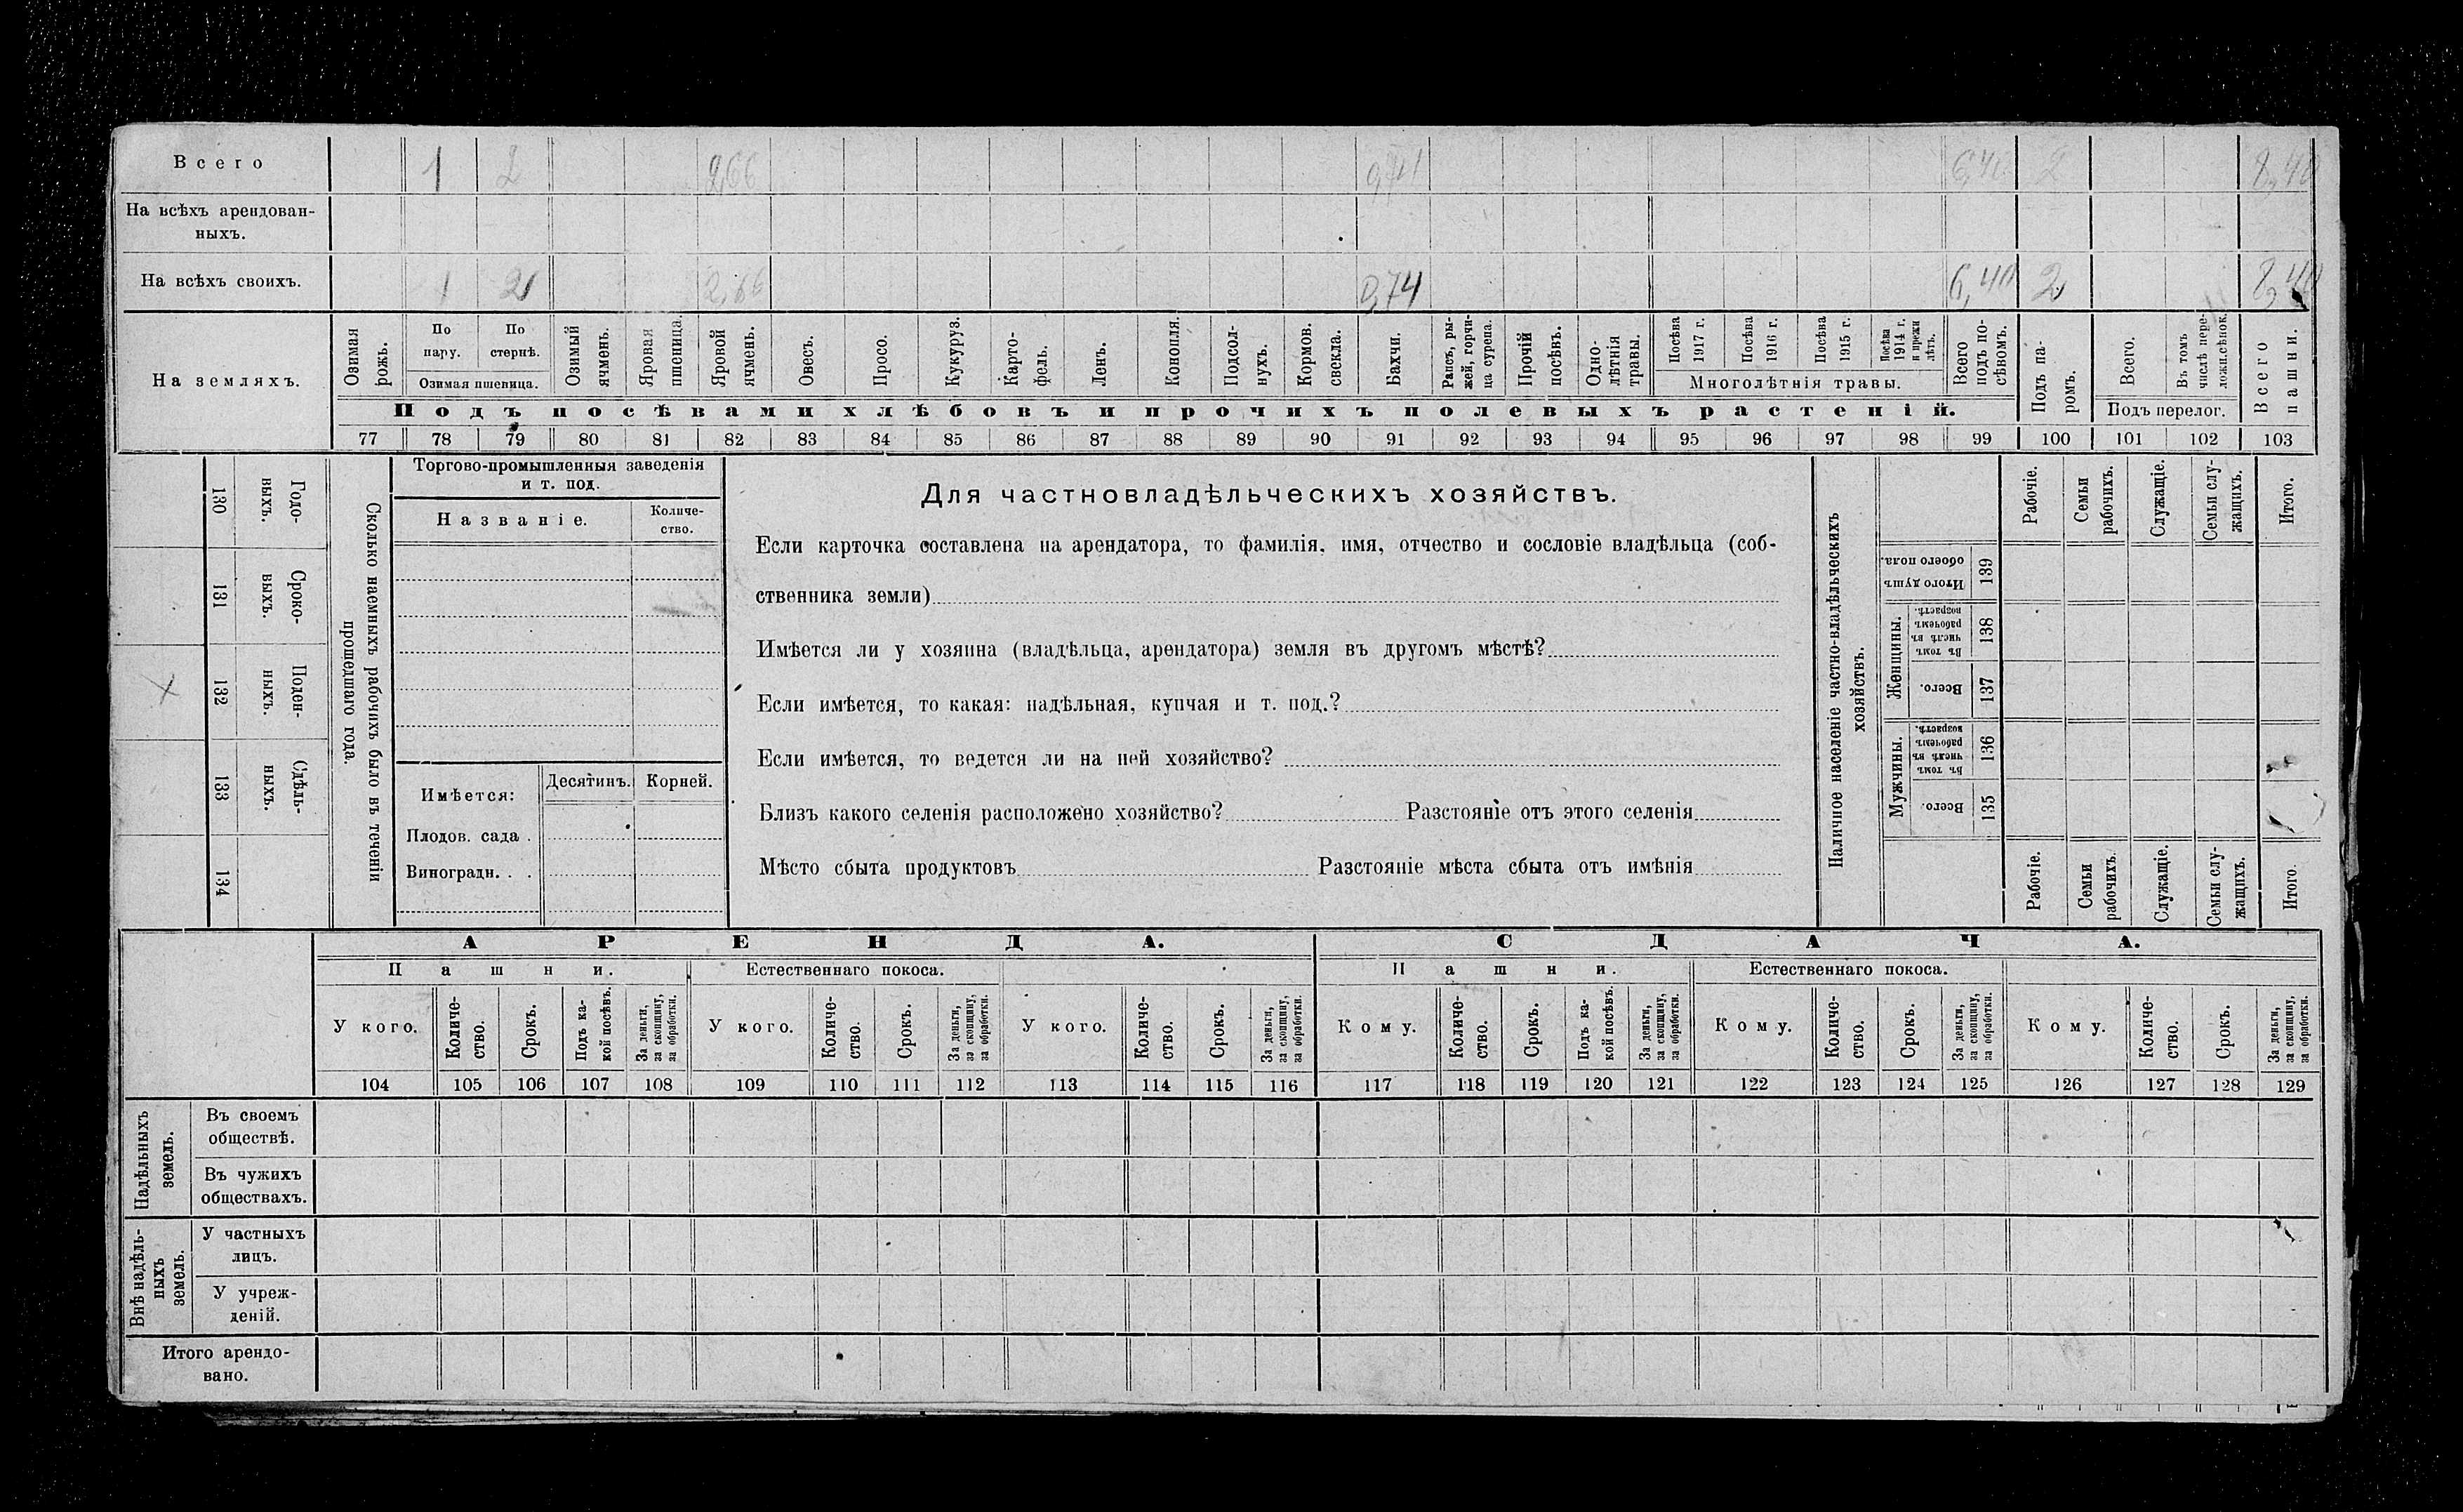 Всего 1 2 2,66 0,74 6,40 2 8,40
На всѣхъ арендован-
ныхъ.
На всѣхъ своихъ. 1 2 2,66 0,74 6,40 2 8,40
На земляхъ.
Озимая рожь.
По пару.
По стернѣ.
Озимая пшеница.
Озимый ячмень.
Яровая пшеница.
Яровой ячмень.
Овесъ.
Просо.
Кукуруз.
Карто-
фель.
Ленъ.
Конопля.
Подсол-
нухъ.
Кормов.
свекла.
Бахчи.
Рапсъ, ры-
жей, горчи-
ца сурепа.
Прочій
посѣвъ.
Одно-
лѣтнія
травы.
Посѣва
1917 г.
Посѣва
1916 г.
Посѣва
1915 г.
Посѣва
1914 г.
и прежн
лѣтъ.
Многолѣтнія травы.
Всего
подъ по-
сѣвомъ.
Подъ па-
ромъ.
Всего.
Въ томъ
числѣ пере-
ложн.сѣнок.
Подъ перелог.
Всего
пашни.
Подъ посѣвами хлѣбовъ и прочихъ полевыхъ растеній.
77 78 79 80 81 82 83 84 85 86 87 88 89 90 91 92 93 94 95 96 97 98 99 100 101 102 103
Сколько наемныхъ рабочихъ было въ теченіи
прошедшаго года.
130 Годо-
выхъ.
131 Сроко-
выхъ.
132 Поден-
ныхъ.
133 Сдѣль-
ныхъ.
134
Торгово-промышленныя заведенія
и т. под.
Названіе.
Количе-
ство.
Имѣется: Десятинъ. Корней.
Плодов. сада .
Виноградн. . .
Для частновладѣльческихъ хозяйствъ.
Если карточка составлена на арендатора, то фамилія, имя, отчество и сословіе владѣльца (соб-
ственника земли)
Имѣется ли у хозяина (владѣльца, арендатора) земля въ другомъ мѣстѣ?
Если имѣется, то какая: надѣльная, купчая и т. под.?
Если имѣется, то ведется ли на ней хозяйство?
Близъ какого селенія расположено хозяйство? Разстояніе отъ этого селенія
Мѣсто сбыта продуктовъ Разстояніе мѣста сбыта отъ имѣнія
Наличное населеніе частно-владѣльческихъ
хозяйствъ.
Рабочіе.
Семьи
рабочихъ.
Служащіе.
Семьи слу-
жащихъ.
Итого.
Итого душъ
обоего пола.
139
Женщины.
Въ томъ
числѣ въ
рабочемъ
возрастѣ.
138
Всего.
137
Мужчины.
Въ томъ
числѣ въ
рабочемъ
возрастѣ.
136
Всего.
135
Рабочіе.
Семьи
рабочихъ.
Служащіе.
Семьи слу-
жащихъ.
Итого.
АРЕНДА. СДАЧА.
Пашни. Естественнаго покоса. Пашни. Естественнаго покоса.
У кого.
Количе-
ство.
Срокъ.
Подъ ка-
кой посѣвъ.
За деньги,
за скопщину,
за обработки.
У кого.
Количе-
ство.
Срокъ.
За деньги,
за скопщину,
за обработки.
У кого.
Количе-
ство.
Срокъ.
За деньги,
за скопщину,
за обработки.
Кому.
Количе-
ство.
Срокъ.
Подъ ка-
кой посѣвъ.
За деньги,
за скопщину,
за обработки.
Кому.
Количе-
ство.
Срокъ.
За деньги,
за скопщину,
за обработки.
Кому.
Количе-
ство.
Срокъ.
За деньги,
за скопщину,
за обработки.
104 105 106 107 108 109 110 111 112 113 114 115 116 117 118 119 120 121 122 123 124 125 126 127 128 129
Надѣльныхъ
земель.
Въ своемъ
обществѣ.
Въ чужихъ
обществахъ.
Внѣ надѣль-
ныхъ
земель.
У частныхъ
лицъ.
У учреж-
деній.
Итого арендо-
вано.